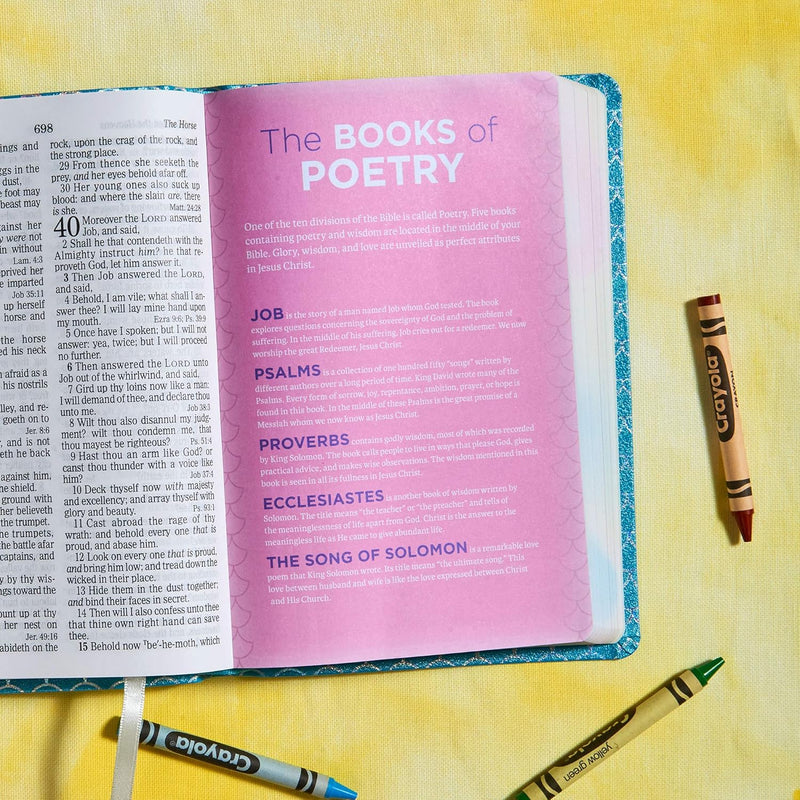 698
The Horse
ings and
ggs in the
dust,
e foot may
beast may
ainst her
y were not
in without
Lam. 4:3
prived her
e imparted
Job 35:11
up herself
horse and
the horse
ed his neck
afraid as a
his nostrils
lley, and re-
goeth on to
Jer. 8:6
and is not
eth he back
against him,
he shield.
ground with
her believeth
the trumpet.
he trumpets,
the battle afar
captains, and
y by thy wis-
ings toward the
ount up at thy
her nest on
Jer. 49:16
abideth on the
rock, upon the crag of the rock, and
the strong place.
29 From thence she seeketh the
prey, and her eyes behold afar off.
30 Her young ones also suck up
blood: and where the slain are, there
is she. Matt. 24:28
40 Moreover the LORD answered
Job, and said,
2 Shall he that contendeth with the
Almighty instruct him? he that re-
proveth God, let him answer it.
3 Then Job answered the LORD,
and said,
4 Behold, I am vile; what shall I an-
swer thee? I will lay mine hand upon
my mouth. Ezra 9:6; Ps. 39:9
5 Once have I spoken; but I will not
answer: yea, twice; but I will proceed
no further.
6 Then answered the LORD unto
Job out of the whirlwind, and said,
7 Gird up thy loins now like a man:
I will demand of thee, and declare thou
unto me. Job 38:3
8 Wilt thou also disannul my judg-
ment? wilt thou condemn me, that
thou mayest be righteous? Ps. 51:4
9 Hast thou an arm like God? or
canst thou thunder with a voice like
him? Job 37:4
10 Deck thyself now with majesty
and excellency; and array thyself with
glory and beauty. Ps. 93:1
11 Cast abroad the rage of thy
wrath: and behold every one that is
proud, and abase him.
12 Look on every one that is proud,
and bring him low; and tread down the
wicked in their place.
13 Hide them in the dust together;
and bind their faces in secret.
14 Then will I also confess unto thee
that thine own right hand can save
thee.
15 Behold now be'-he-moth, which
The BOOKS of
POETRY
One of the ten divisions of the Bible is called Poetry. Five books
containing poetry and wisdom are located in the middle of your
Bible. Glory, wisdom, and love are unveiled as perfect attributes
in Jesus Christ.
JOB is the story of a man named Job whom God tested. The book
explores questions concerning the sovereignty of God and the problem of
suffering. In the middle of his suffering, Job cries out for a redeemer. We now
worship the great Redeemer, Jesus Christ.
PSALMS is a collection of one hundred fifty “songs” written by
different authors over a long period of time. King David wrote many of the
Psalms. Every form of sorrow, joy, repentance, ambition, prayer, or hope is
found in this book. In the middle of these Psalms is the great promise of a
Messiah whom we now know as Jesus Christ.
PROVERBS contains godly wisdom, most of which was recorded
by King Solomon. The book calls people to live in ways that please God, gives
practical advice, and makes wise observations. The wisdom mentioned in this
book is seen in all its fullness in Jesus Christ.
ECCLESIASTES is another book of wisdom written by
Solomon. The title means “the teacher” or “the preacher” and tells of
the meaninglessness of life apart from God. Christ is the answer to the
meaningless life as He came to give abundant life.
THE SONG OF SOLOMON is a remarkable love
poem that King Solomon wrote. Its title means “the ultimate song.” This
love between husband and wife is like the love expressed between Christ
and His Church.
Crayola
CRAYON
Crayola
yellow green